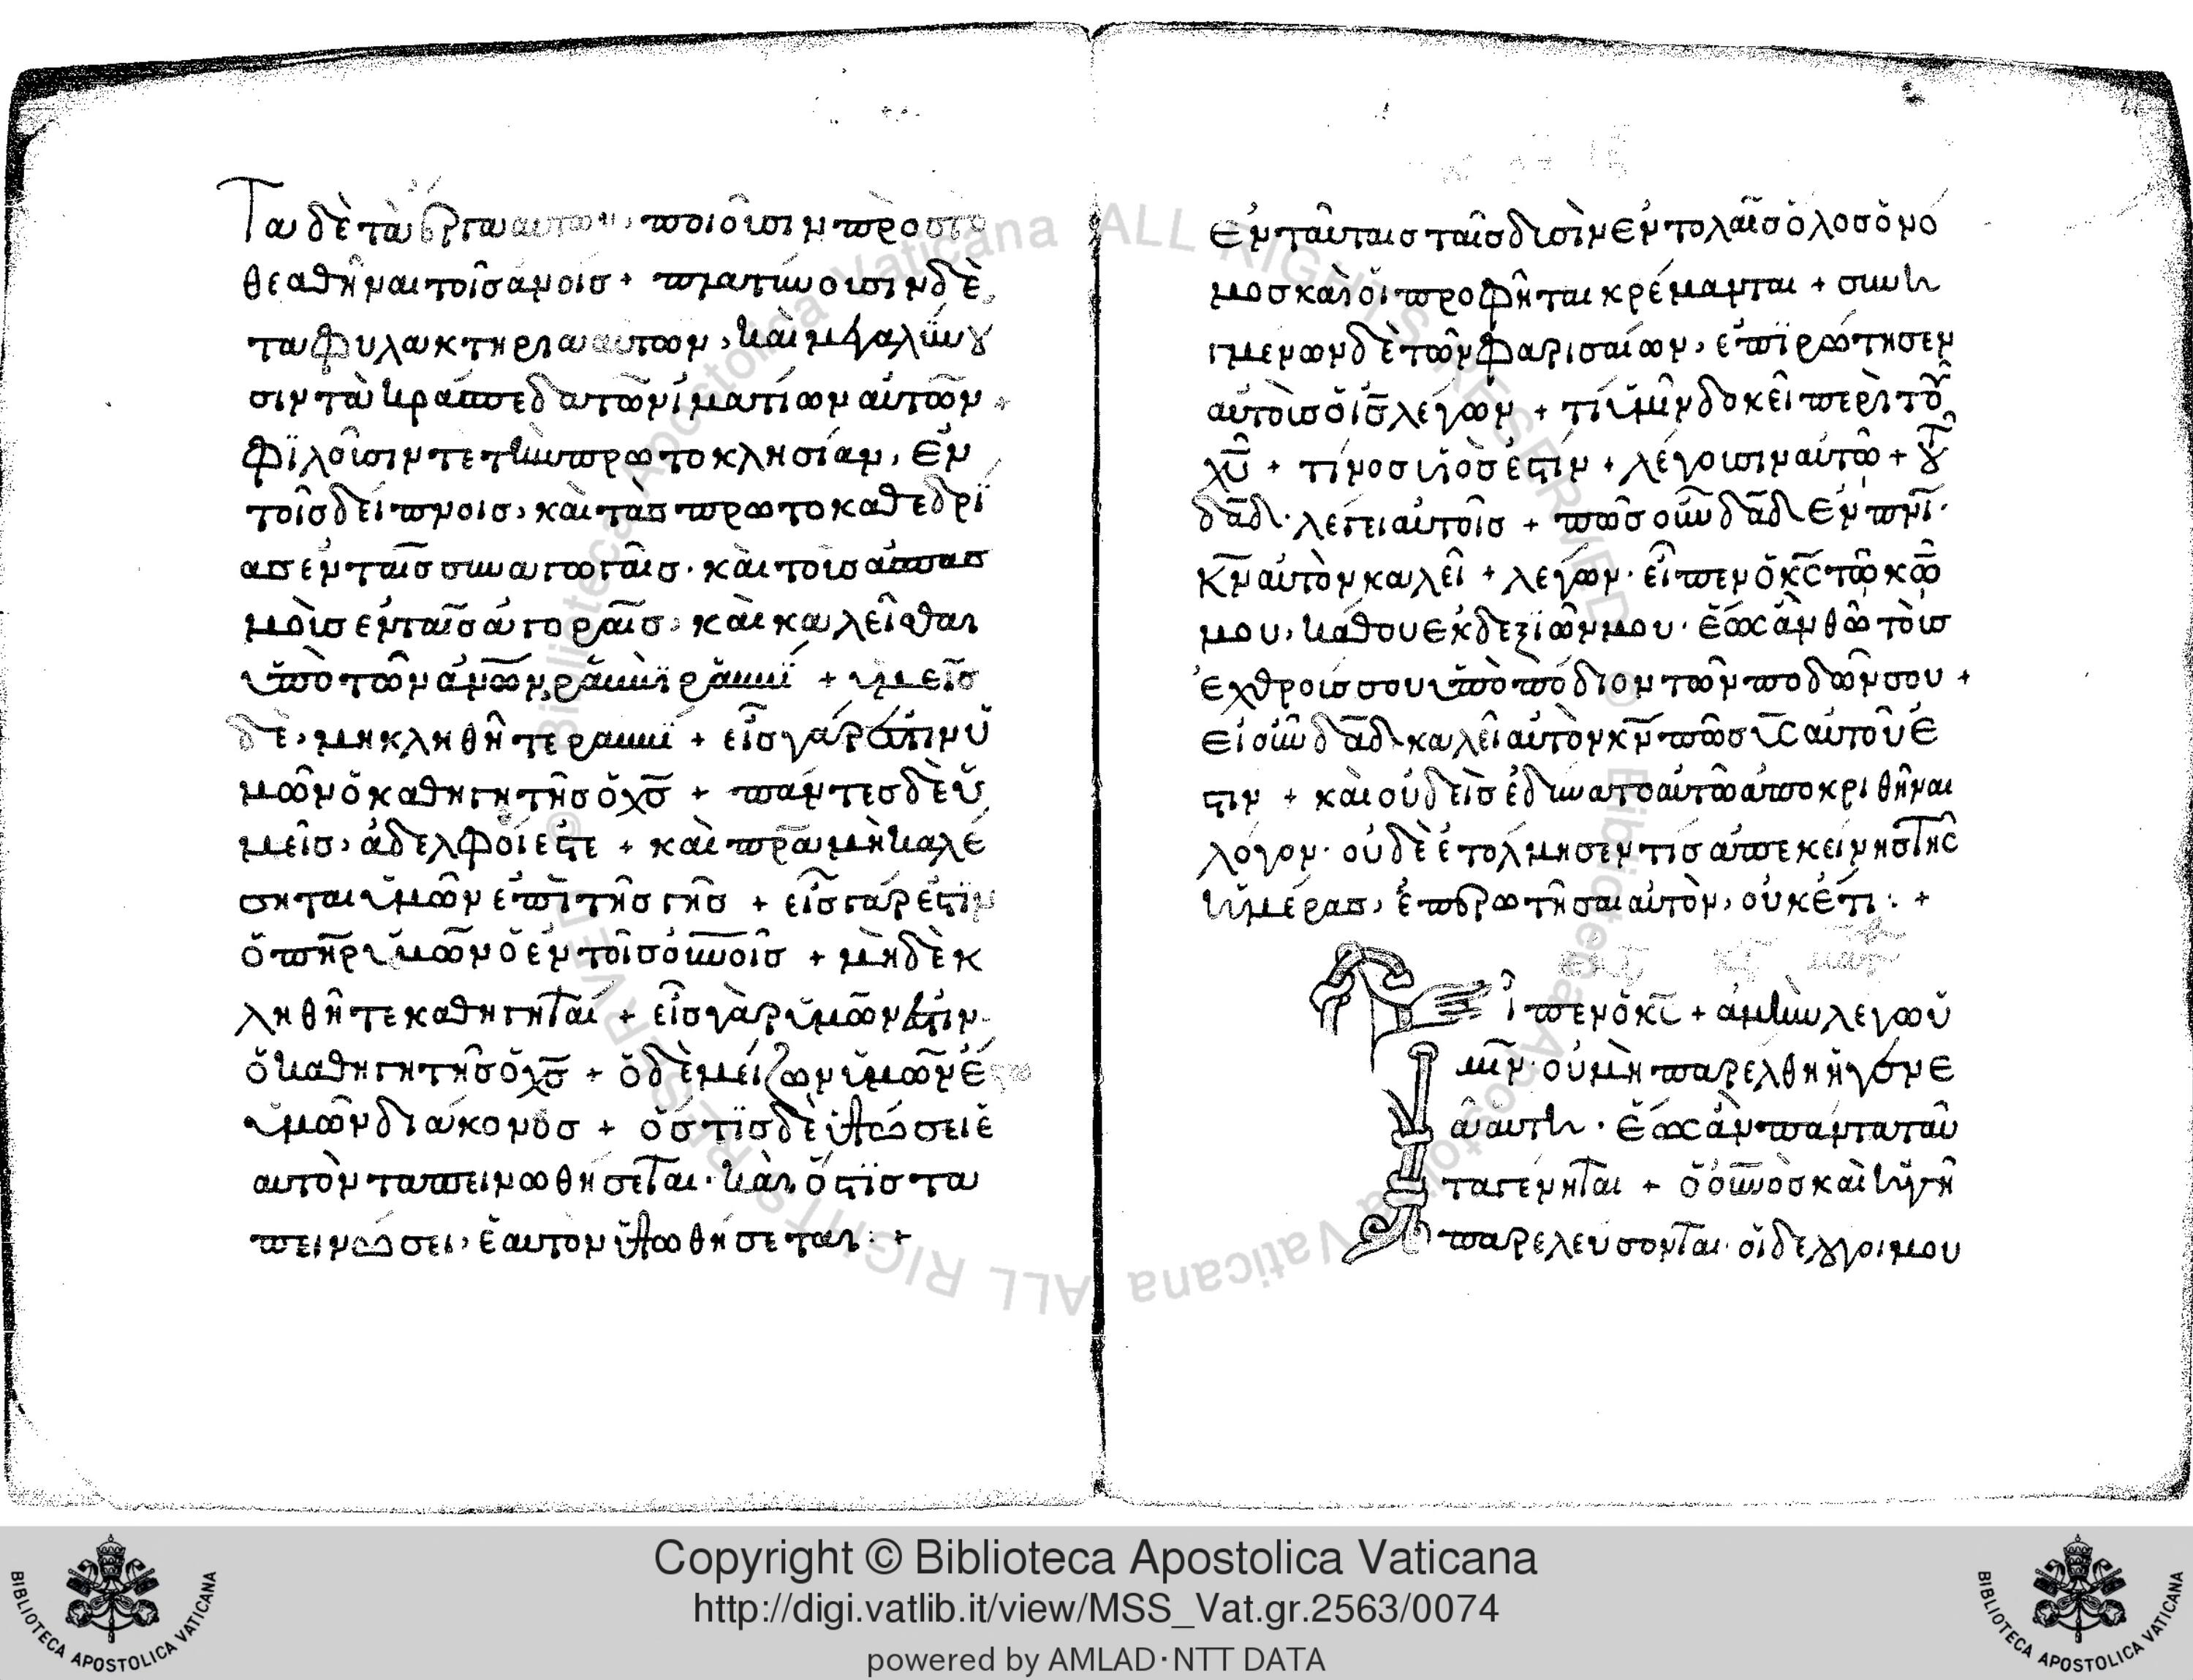 Τα δὲ τὰ ἔργα αυτων, ποιοῦσιν πρὸς τὸ
θεαθῆναι τοῖς ἀνοις + πλατύνουσιν δὲ
τα φυλακτηρια αυτων, καὶ μεγαλύνου
σιν τὰ κράσπεδα τῶν ἱματίων αὐτῶν +
φιλοῦσιν τε τὴν πρωτοκλησίαν, ἐν
τοῖς δείπνοις, καὶ τὰς πρωτοκαθεδρί
ας ἐν ταῖς συναγωγαῖς. καὶ τοὺς ἀσπασ
μοὺς ἐν ταῖς ἀγοραῖς, καὶ καλεῖσθαι
ὑπὸ τῶν ἀνων, ῥαββὶ ῥαββί + ὑμεῖς
δὲ, μὴ κληθῆτε ραββί + εἷς γάρ ἐστιν ὑ
μῶν ὁ καθηγητὴς ὁ χς + πάντες δὲ ὑ
μεῖς, ἀδελφοί ἐστε + καὶ πρα μὴ καλέ
σηται ὑμῶν ἐπὶ τῆς γῆς + εἷς γάρ ἐστιν
ὁ πηρ ὑμῶν ὁ ἐν τοῖς οὐνοις + μηδὲ κ
ληθῆτε καθηγηταί + εἷς γὰρ ὑμῶν ἐστιν
ὁ καθηγητὴς ὁ χς + ὁ δὲ μείζων ὑμῶν ἔσται
ὑμῶν διάκονος + ὅστις δὲ ὑψώσει ἑ
αυτὸν ταπεινωθήσεται. καὶ ὅστις τα
πεινώσει, ἑαυτὸν ὑψωθήσεται : +
ἐν ταύταις ταῖς δυσὶν ἐντολαῖς ὅλος ὁ νο
μος καὶ οἱ προφῆται κρέμανται + συνη
γμενων δὲ τῶν φαρισαίων, ἐπηρώτησεν
αὐτοὺς ὁ ις λέγων + τί ὑμῖν δοκεῖ περὶ τοῦ
χυ + τίνος υἱός ἐστιν + λέγουσιν αὐτῷ + τοῦ
δαδ. λέγει αὐτοῖς + πῶς οὖν δαδ ἐν πνι.
κν αὐτὸν καλεῖ + λέγων. εἶπεν ὁ κς τῷ κω
μου, κάθου ἐκ δεξιῶν μου. ἕως ἂν θῶ τοὺς
ἐχθρούς σου ὑποπόδιον τῶν ποδῶν σου +
εἰ οὖν δαδ καλεῖ αὐτὸν κν πῶς υς αὐτοῦ ἐ
στιν + καὶ οὐδεὶς ἐδύνατο αὐτῷ ἀποκριθῆναι
λόγον. οὐδὲ ἐτόλμησεν τις ἀπ' ἐκείνης τῆς
ἡμέρας, ἐπερωτῆσαι αὐτὸν, οὐκέτι : +
Εἶπεν ὁ κς + ἀμὴν λέγω ὑ
μῖν. οὐ μὴ παρέλθη ἡ γενε
ὰ αὕτη. ἕως ἂν πάντα ταῦ
τα γένηται + ὁ οὐνὸς καὶ ἡ γῆ
παρελεύσονται. οἱ δὲ λόγοι μου
Copyright © Biblioteca Apostolica Vaticana
http://digi.vatlib.it/view/MSS_Vat.gr.2563/0074
powered by AMLAD·NTT DATA
BIBLIOTECA APOSTOLICA VATICANA
BIBLIOTECA APOSTOLICA VATICANA